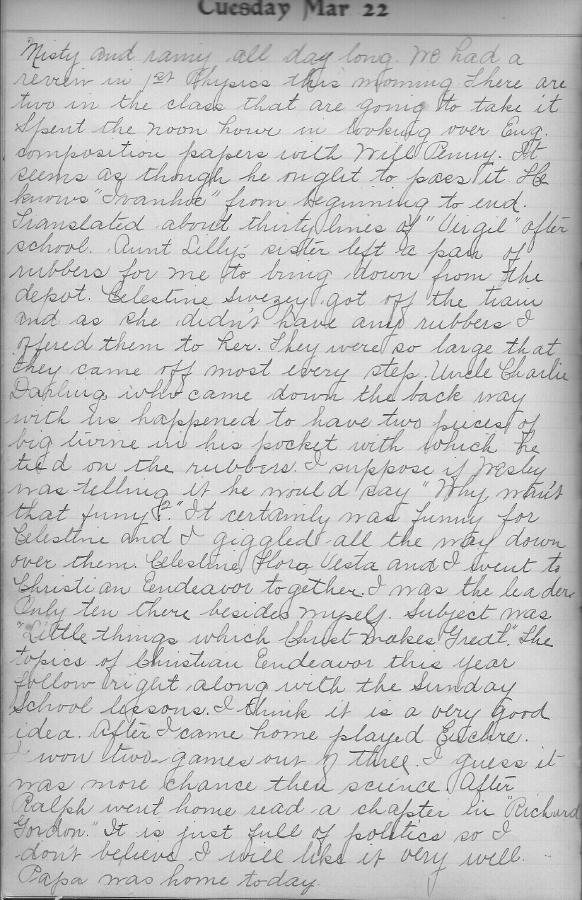 Tuesday Mar 22
Misty and rainy all day long. We had a
review in 1st Physics this morning. There are
two in the class that are going to take it
Spent the noon hour in looking over Eng.
composition papers with Will Penny. It
seems as though he ought to pass it. He
knows "Ivanhoe" from beginning to end.
Translated about thirty lines of "Virgil" after
school. Aunt Lilly's sister left a pair of
rubbers for me to bring down from the
depot. Celestine Swezey got off the train
and as she didn't have any rubbers I
offered them to her. They were so large that
they came off most every step. Uncle Charlie
Darling who came down the back way
with us happened to have two pieces of
big twine in his pocket with which he
tied on the rubbers. I suppose if Wesley
was telling it he would say "Why wan't
that funny?" It certainly was funny for
Celestine and I giggled all the way down
over them. Celestine, Flora, Vesta and I went to
Christian Endeavor together. I was the leader
Only ten there besides myself. Subject was
"Little things which Christ makes Great." The
topics of Christian Endeavor this year
follow right along with the Sunday
School lessons. I think it is a very good
idea. After I came home played Euchre.
I won two games out of three. I guess it
was more chance then science. After
Ralph went home read a chapter in "Richard
Gordon." It is just full of politics so I
don't believe I will like it very well.
Papa was home today.